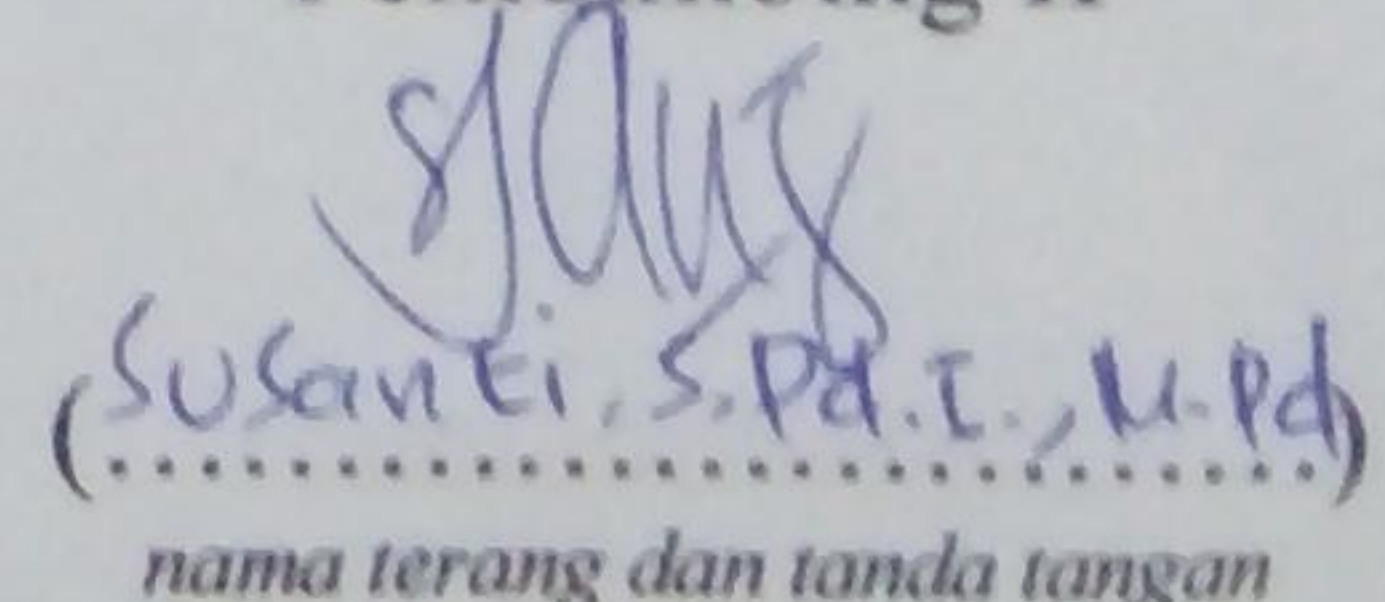 Susanti, S.Pd.I., M.Pd
(..............................)
nama terang dan tanda tangan